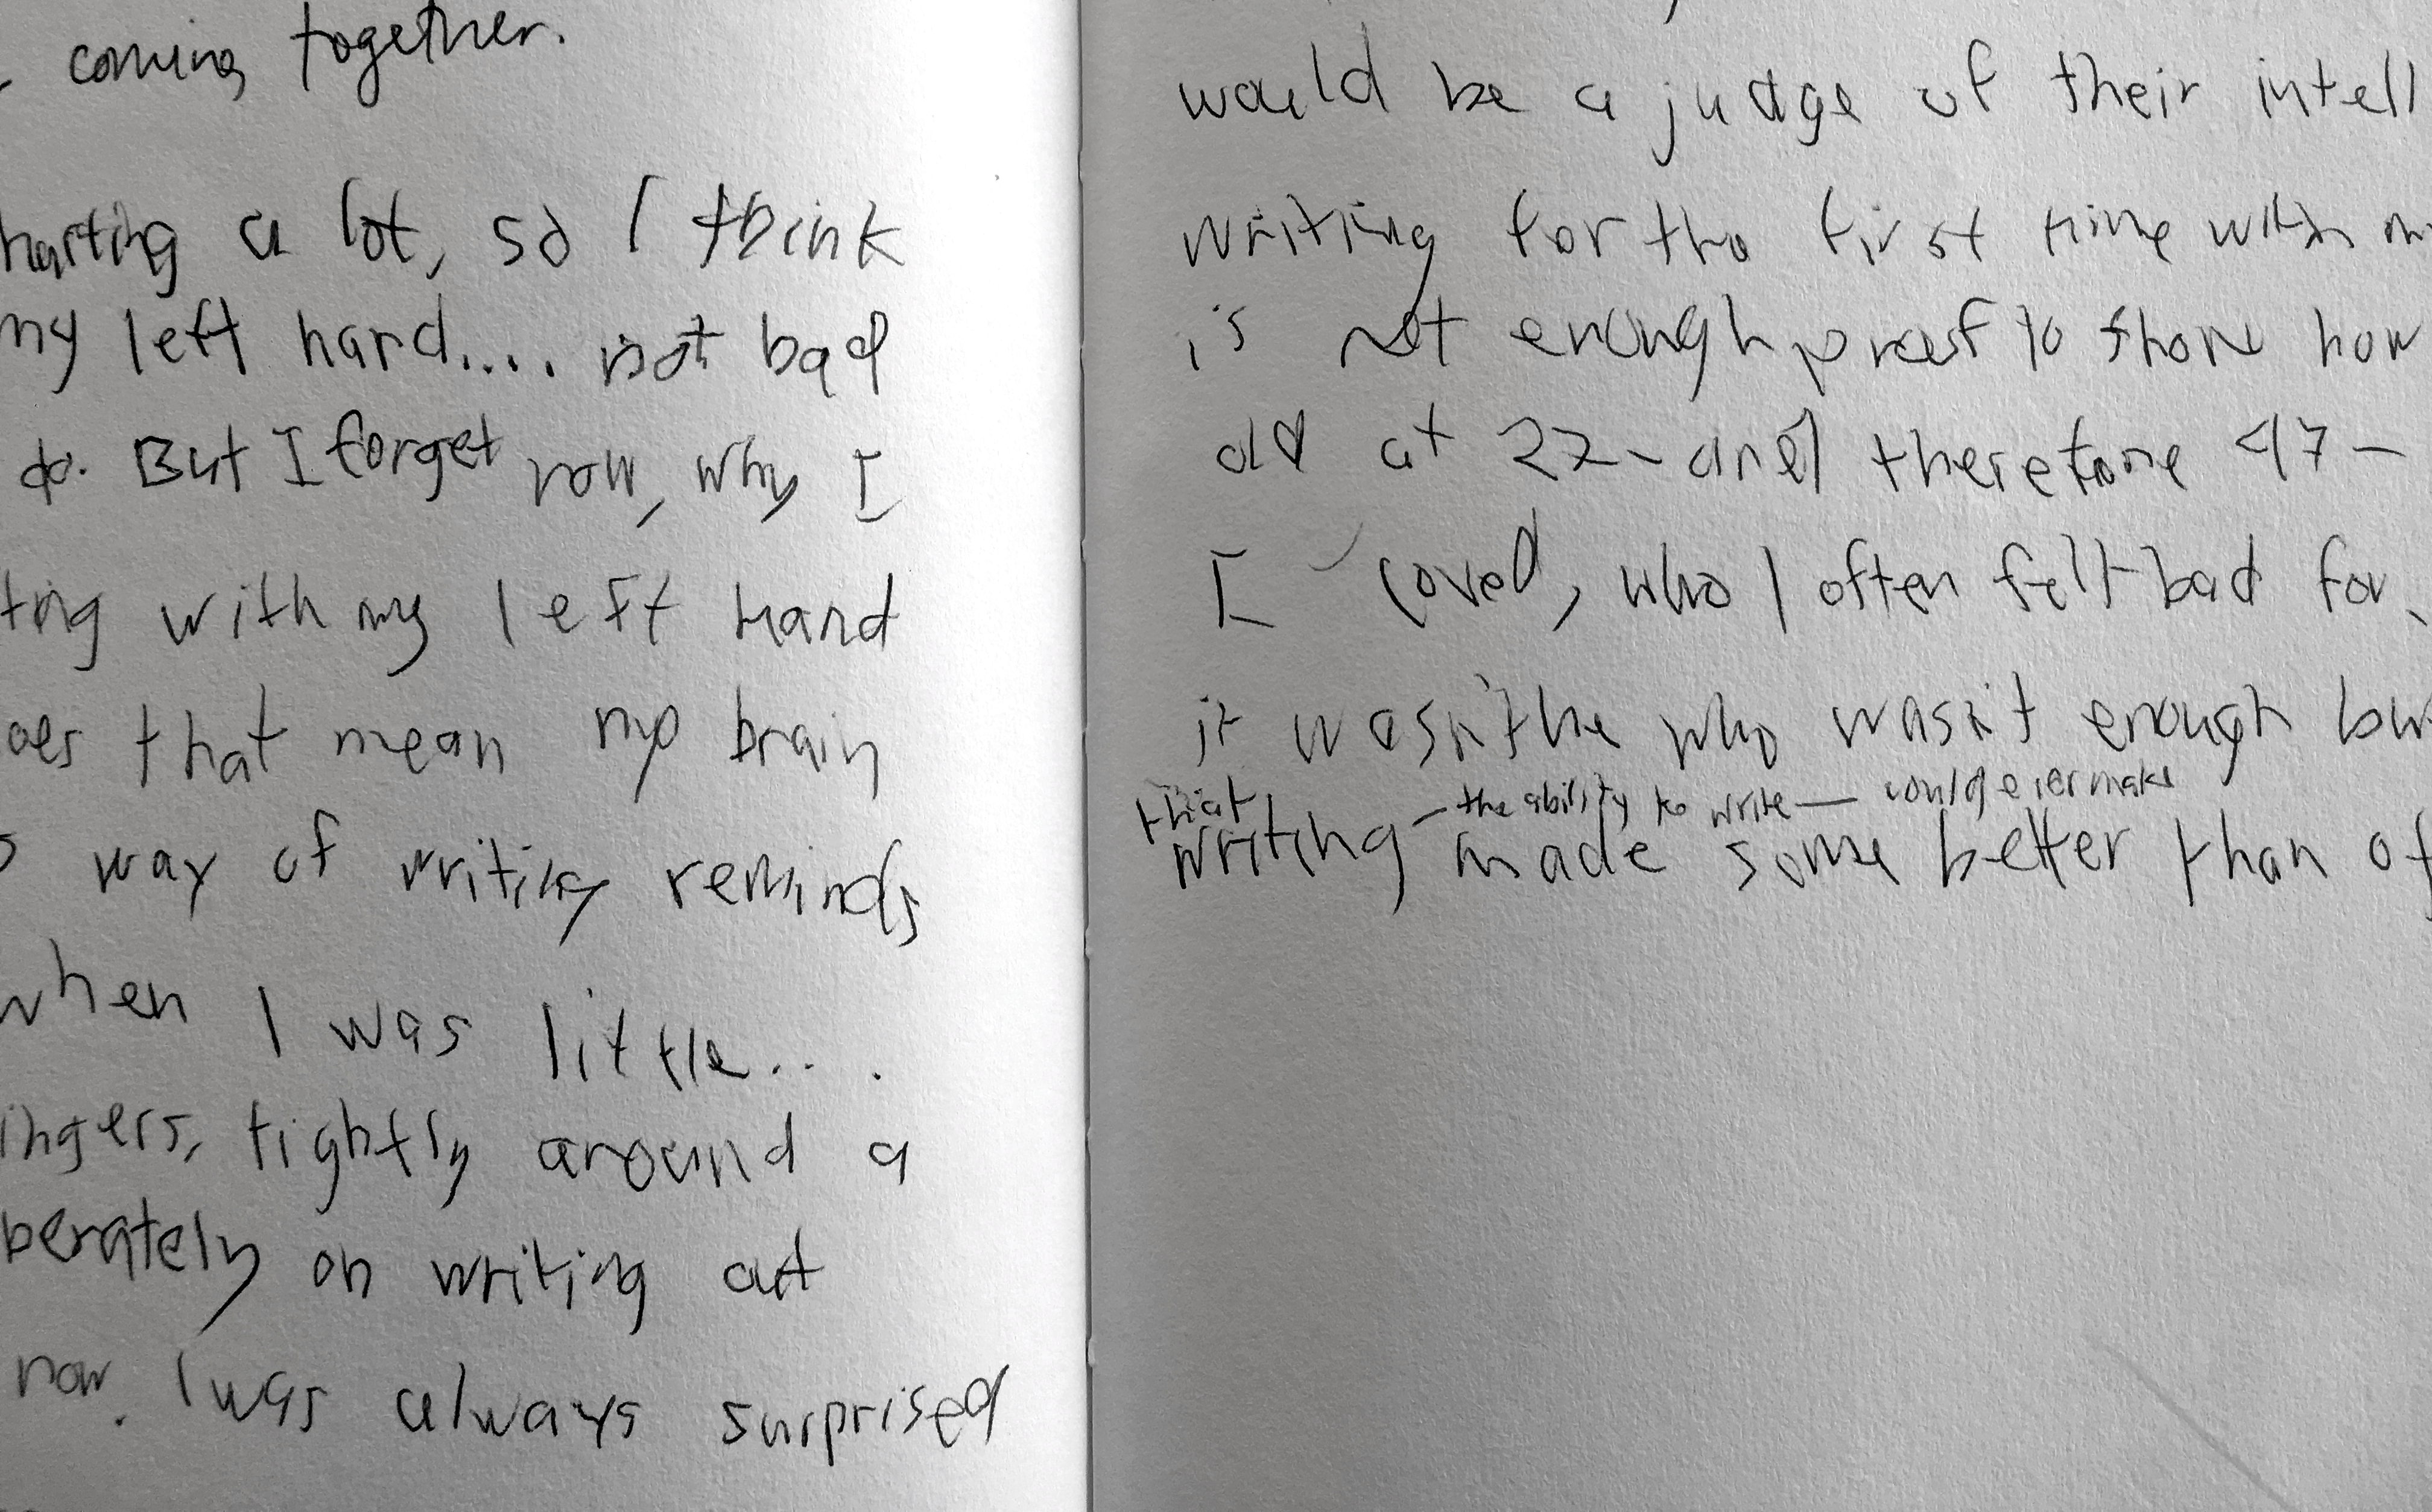 coming together.
hurting a lot, so I think
my left hand.... not bad
do. But I forget now, why I
ting with my left hand
oes that mean my brain
s way of writing reminds
when I was little...
ingers, tightly around a
berately on writing out
now. I was always surprised
would be a judge of their intell
writing for the first time with m
is not enough proof to show how
old at 22 - and therefore 47 -
I loved, who I often felt bad for.
it wasn't he who wasn't enough bu
that - the ability to write — could ever make
writing made some better than ot